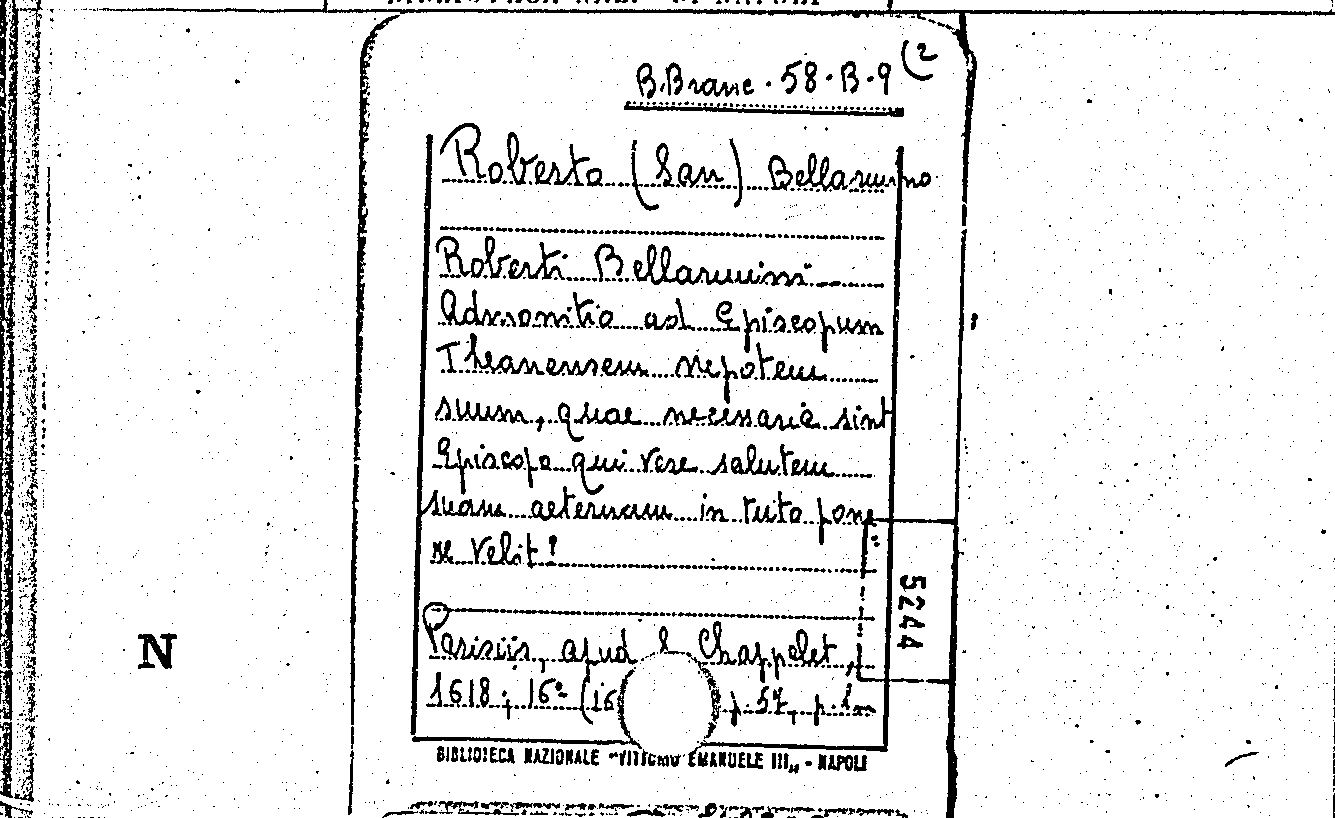 B. Branc. 58. B. 9 (2
Roberto (San) Bellarmino
Roberti Bellarmini
Admonitio ad Episcopum
Theanensem nepotem
suum, quae necessaria sint
Episcopo qui vere salutem
suam aeternam in tuto pone
re velit!
5244
Parisiis, apud S. Chappelet,
N
1618; 16° (16 p. 57, p.
BIBLIOTECA NAZIONALE "VITTORIO EMANUELE III" - NAPOLI